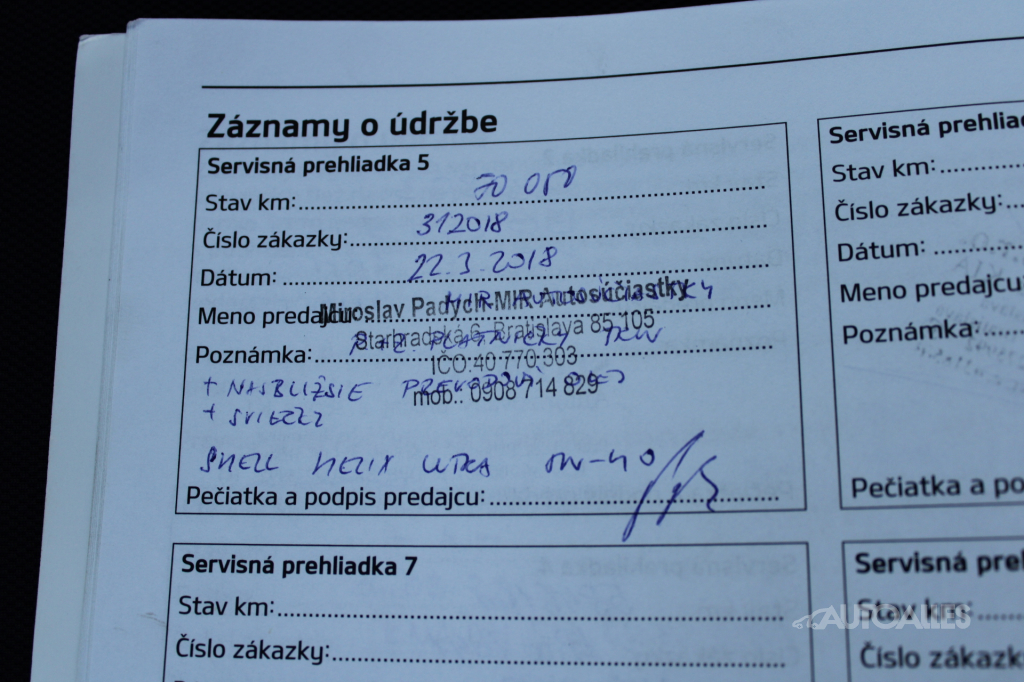 Záznamy o údržbe
Servisná prehliadka 5
Stav km: 70 000
Číslo zákazky: 312018
Dátum: 22.3.2018
Meno predajcu:
Miroslav Padych-MIR Autosúčiastky
Starhradská 6, Bratislava 85 105
Poznámka: P+Z PLATNIČKY TRW
IČO:40 770 303
+ NAJBLIŽSIE PREVODOVÝ OLEJ
mob.: 0908 714 829
+ SVIEČKY
SHELL HELIX ULTRA 5W-40
Pečiatka a podpis predajcu:
Servisná prehliadka 7
Stav km:
Číslo zákazky:
Servisná prehliad
Stav km:
Číslo zákazky:
Dátum:
Meno predajcu
Poznámka:
Pečiatka a po
Servisná preh
Stav km:
Číslo zákazk
AUTOALLES